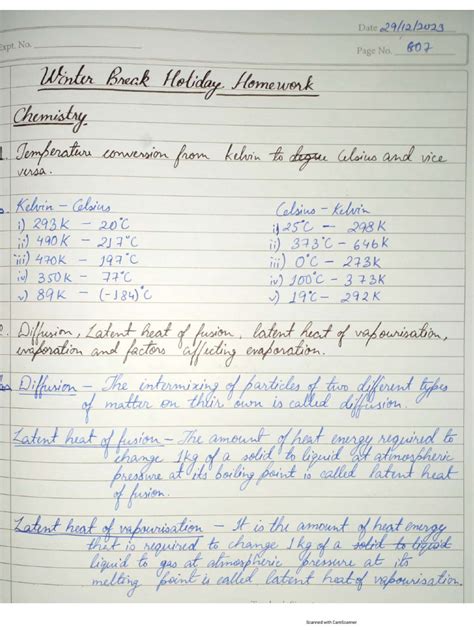 Date 29/12/2023
Expt. No.
Page No. 807
Winter Break Holiday Homework
Chemistry
1. Temperature conversion from kelvin to degree Celsius and vice
versa.
Kelvin – Celsius
Celsius – Kelvin
i) 293K – 20°C
i) 25°C – 298K
ii) 490K – 217°C
ii) 373°C – 646K
iii) 470K – 197°C
iii) 0°C – 273K
iv) 350K – 77°C
iv) 100°C – 373K
v) 89K – (-184)°C
v) 19°C – 292K
Diffusion, Latent heat of fusion, latent heat of vapourisation,
evaporation and factors affecting evaporation.
Diffusion – The intermixing of particles of two different types
of matter on their own is called diffusion.
Latent heat of fusion – The amount of heat energy required to
change 1kg of a solid to liquid at atmospheric
pressure at its boiling point is called latent heat
of fusion.
Latent heat of vapourisation – It is the amount of heat energy
that is required to change 1kg of a solid to liquid
liquid to gas at atmospheric pressure at its
melting point is called latent heat of vapourisation.
Scanned with CamScanner